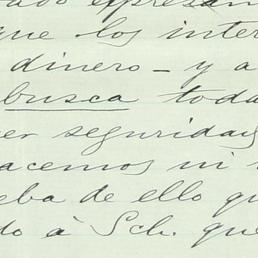 que los inter
dinero - y a
busca toda
er seguridad
acemos ni
eba de ello qu
do à Sch. que